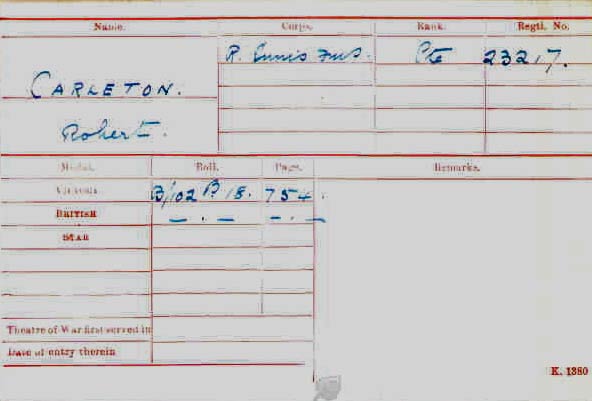 Name. Corps. Rank. Regtl. No.
R. Innis Fus. Pte 23217.
CARLETON.
Robert.
Medal. Roll. Page. Remarks.
VICTORY B/102 B 18. 754.
BRITISH — . — — . —
STAR
Theatre of War first served in
Date of entry therein
K. 1380